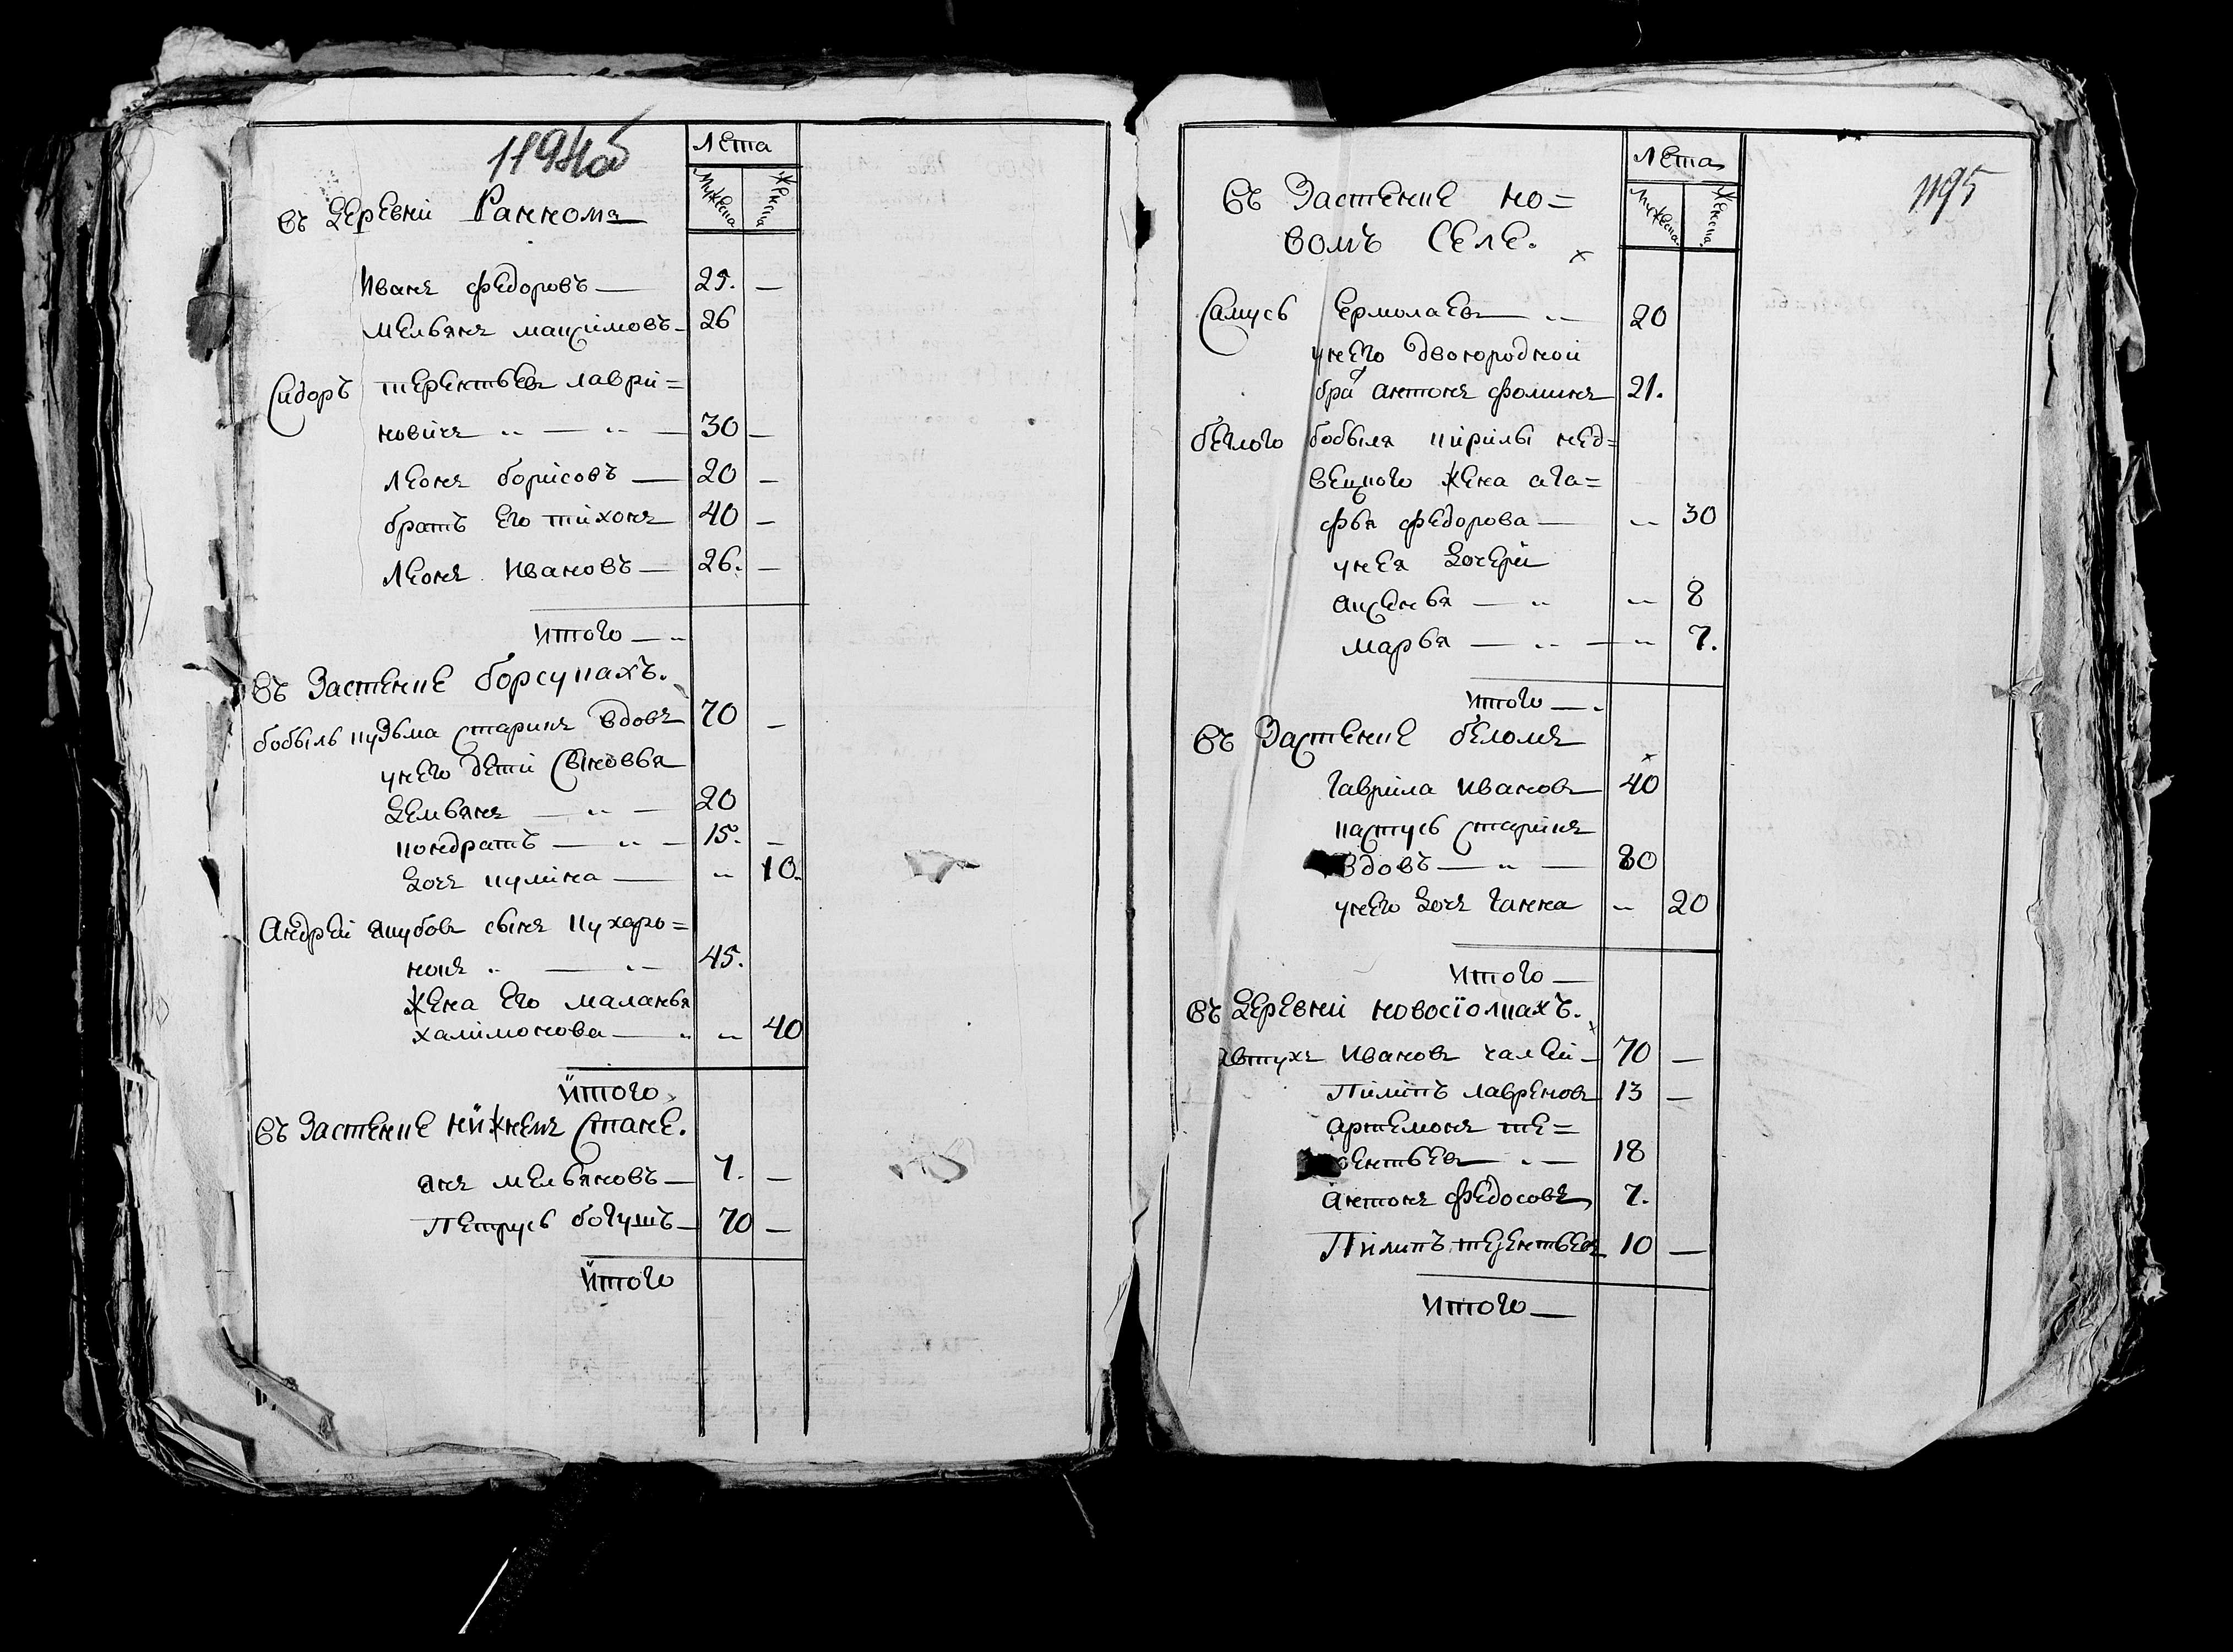 1194об
Лета
Мужеска
Женска
въ Деревни Ранномъ
Иванъ Федоровъ — 25. —
Мельянъ Максимовъ - 26
Сидоръ терентьевъ лаври=
новичъ „ — „ — 30 —
Леонъ борисовъ — 20 —
братъ Его тихонъ 40 —
Леонъ Ивановъ — 26. —
Итого — „
Въ Застенке борсукахъ.
бобыль кузьма старикъ вдовъ 70 —
унего дети сыновья
Демьянъ — „ — 20
кондратъ — „ — 15. —
Дочь кулина — „ 10.
Андрей якубовъ сынъ кухаро=
нокъ „ — „ 45.
жена Его маланья
халимонова — „ „ 40
Итого
Въ Застенке нижнемъ Стане.
анъ Мельяновъ — 7. —
Петрусь богушъ — 70 —
Итого
1195
Лета
Мужеска
Женска
Въ Застенке но=
вомъ Селе.
Самусь Ермолаевъ — „ — 20
унего двоюродной
бра т антонъ фоминъ 21.
беглого бобыля кирилы нед=
вецкого жена ага=
фья федорова — „ 30
унея Дочери
аксенья — „ „ 8
марья — „ — „ 7.
Итого — „
Въ Застенке беломъ
Гаврила Ивановъ — 40
кастусь старикъ
вдовъ — „ — 80
унего Дочь Ганна „ 20
Итого —
Въ Деревни новосіолкахъ.
Автухъ Ивановъ чалей — 70 —
Пилипъ лавреновъ 13 —
артемонъ те=
рентьевъ — „ — 18
антонъ федосовъ 7.
Пилипъ терентьевъ 10 —
Итого —